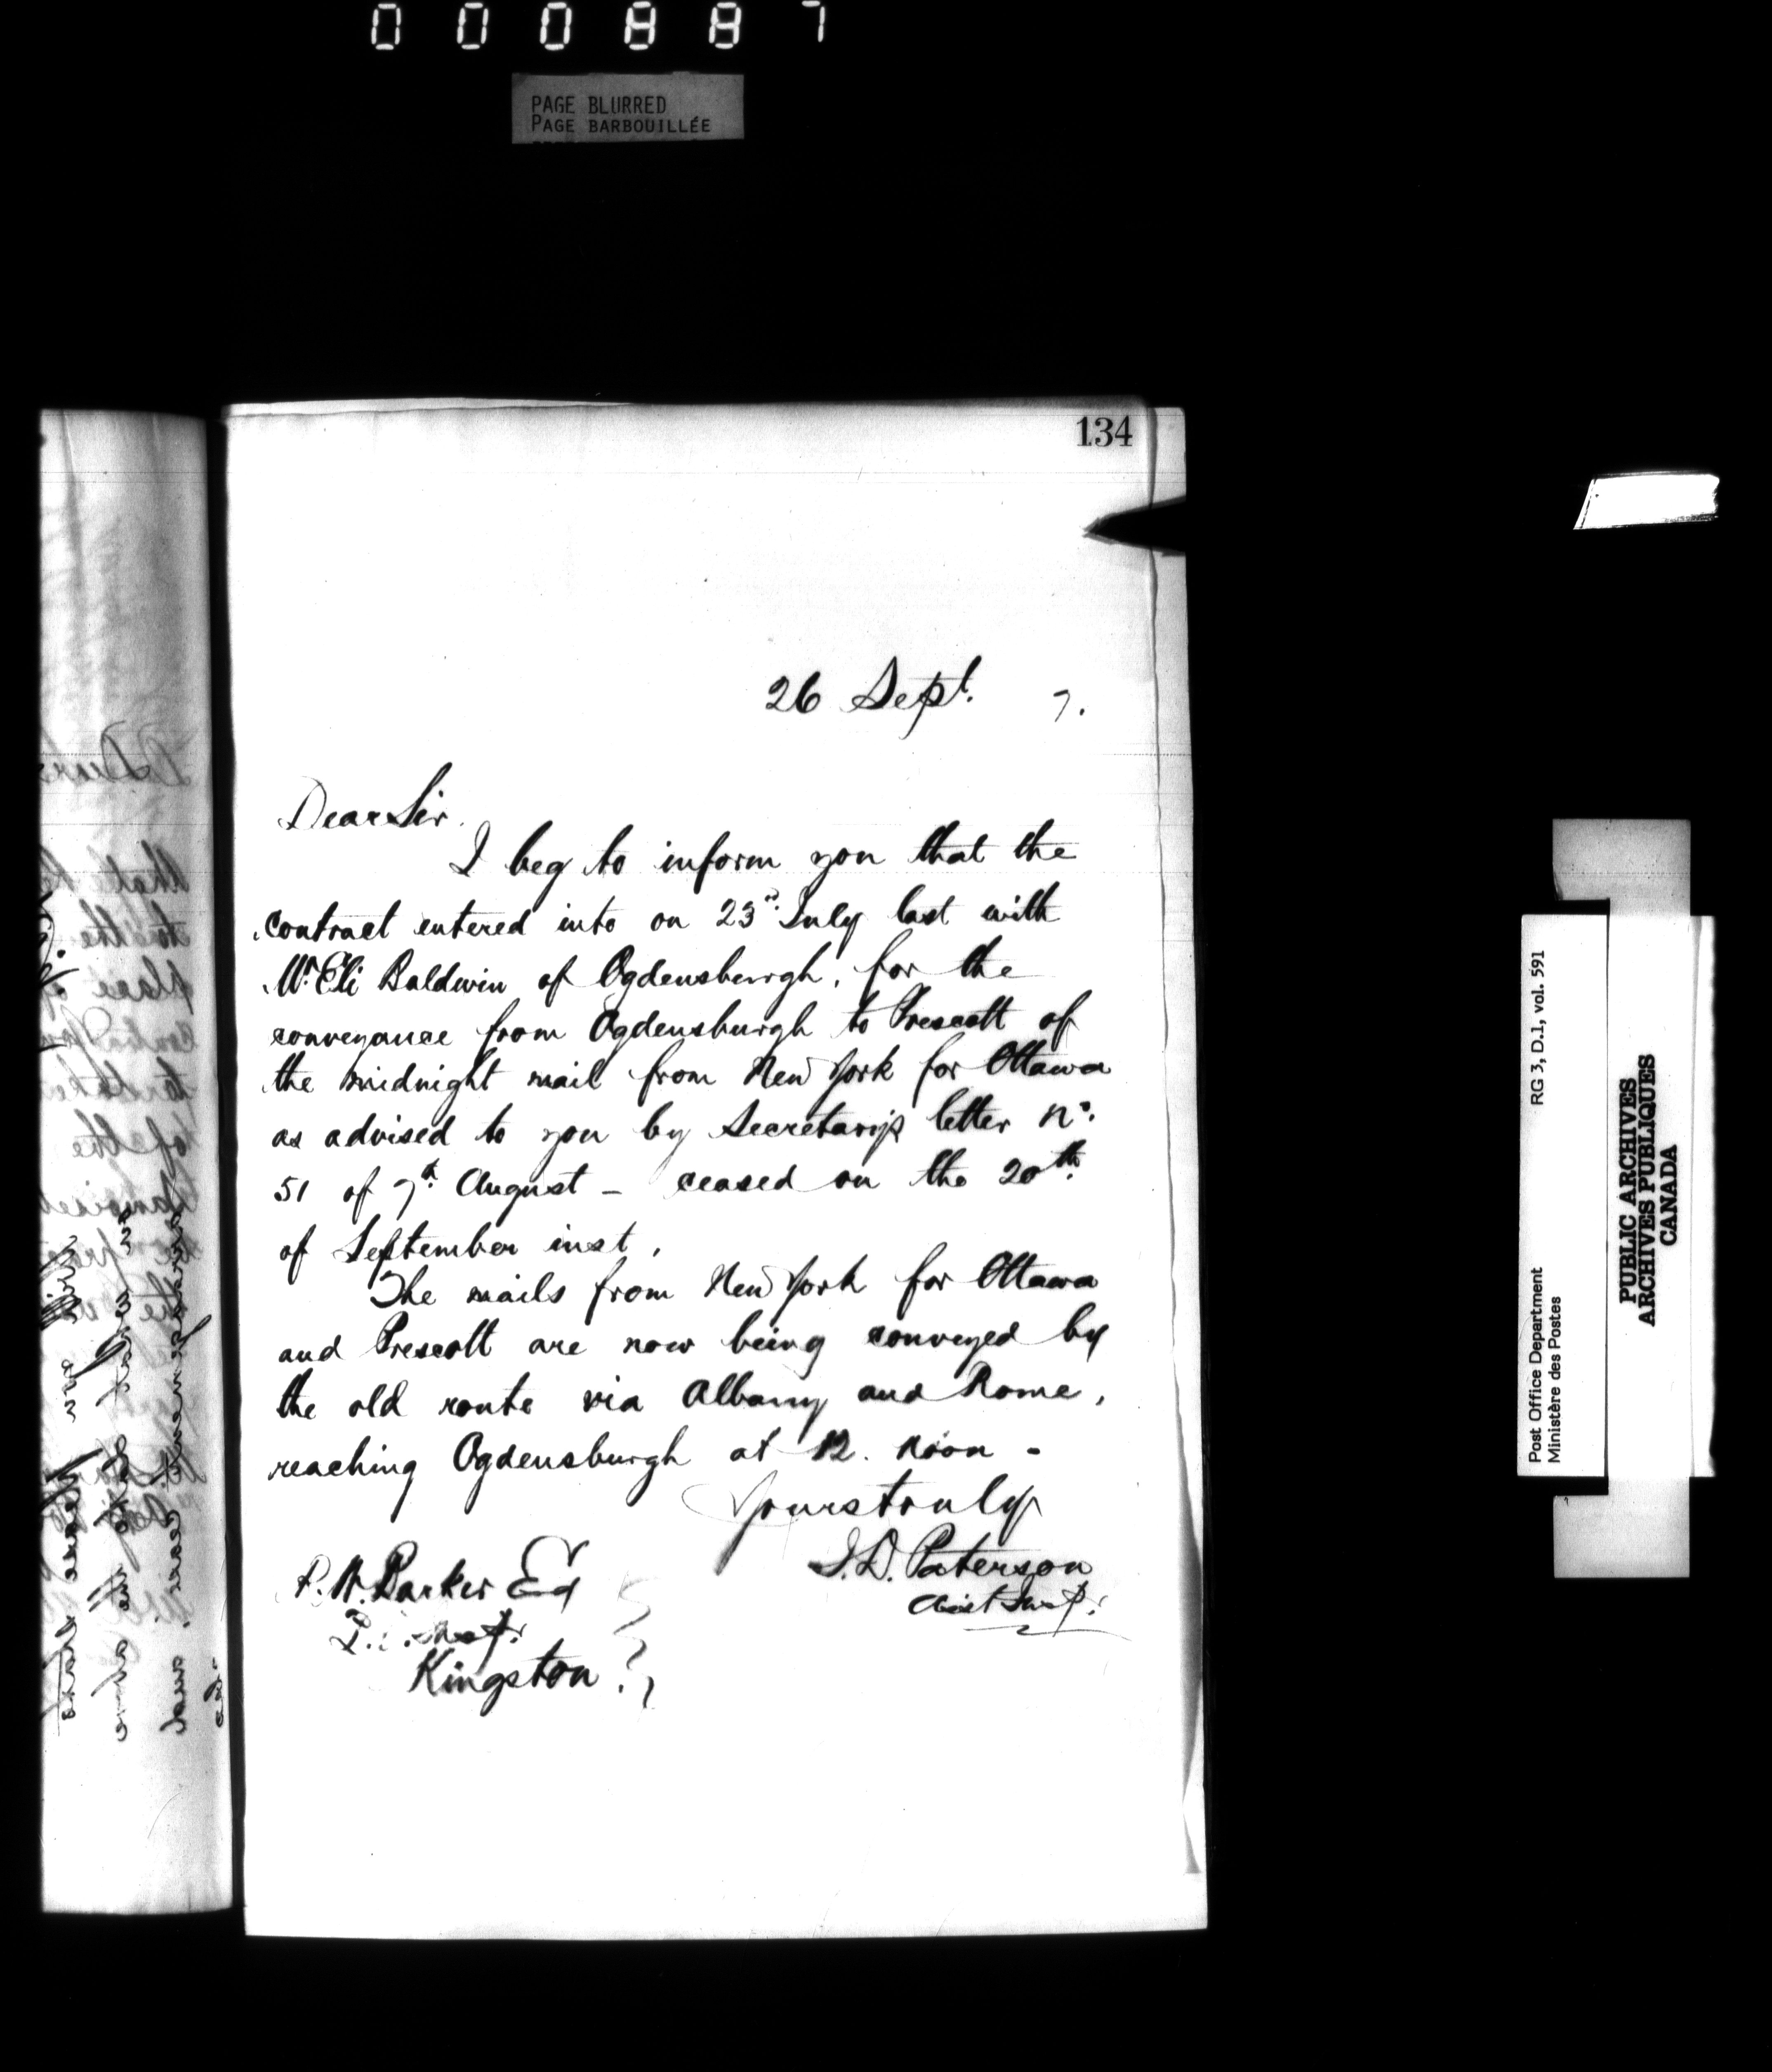 000887
PAGE BLURRED
PAGE BARBOUILLÉE
134
26 Sept. 7.
Dear Sir.
I beg to inform you that the
contract entered into on 23rd July last with
Mr. Eli Baldwin of Ogdensburgh, for the
conveyance from Ogdensburgh to Prescott of
the midnight mail from New York for Ottawa
as advised to you by Secretary's letter No.
51 of 7th August - ceased on the 20th
of September inst.
The mails from New York for Ottawa
and Prescott are now being conveyed by
the old route via Albany and Rome,
reaching Ogdensburgh at 12. noon -
Yours truly
J.D. Paterson
Asst Insp.
R.W. Barker Eq
P.O. Insp.
Kingston
RG 3, D.1, vol. 591
Post Office Department
Ministère des Postes
PUBLIC ARCHIVES
ARCHIVES PUBLIQUES
CANADA